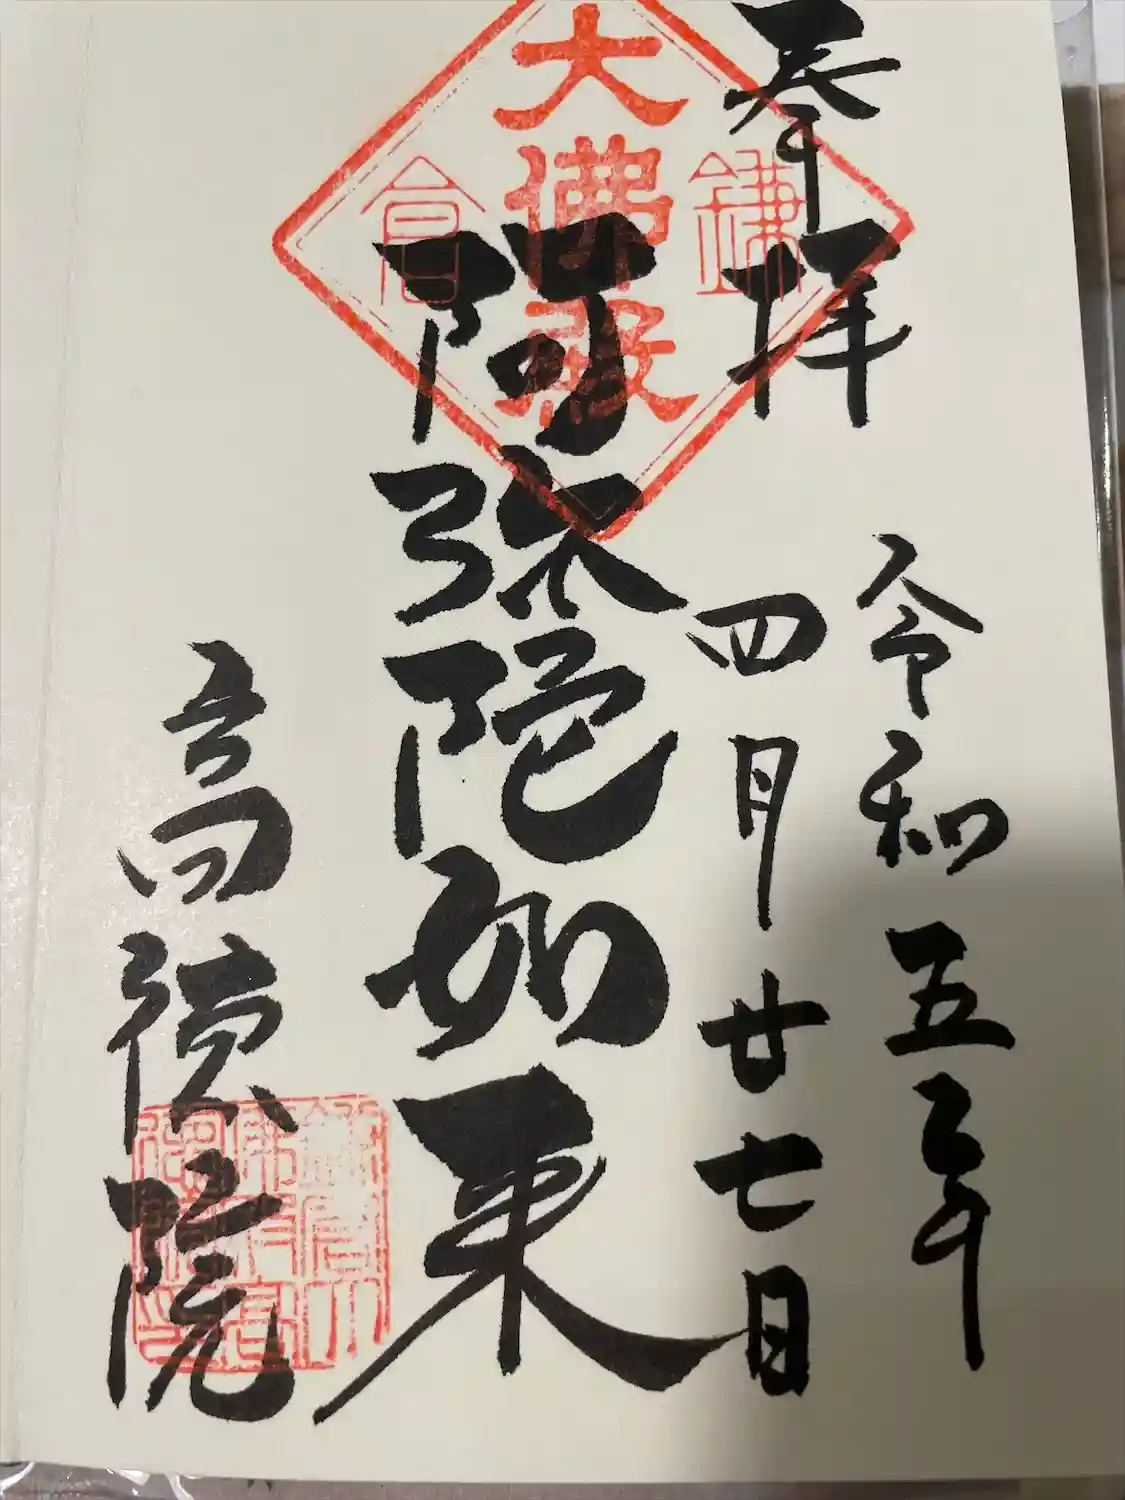 奉拝
令和五年
四月廿七日
大佛殿
鎌倉
阿弥陀如来
高徳院
鎌倉大
佛殿高
徳院印